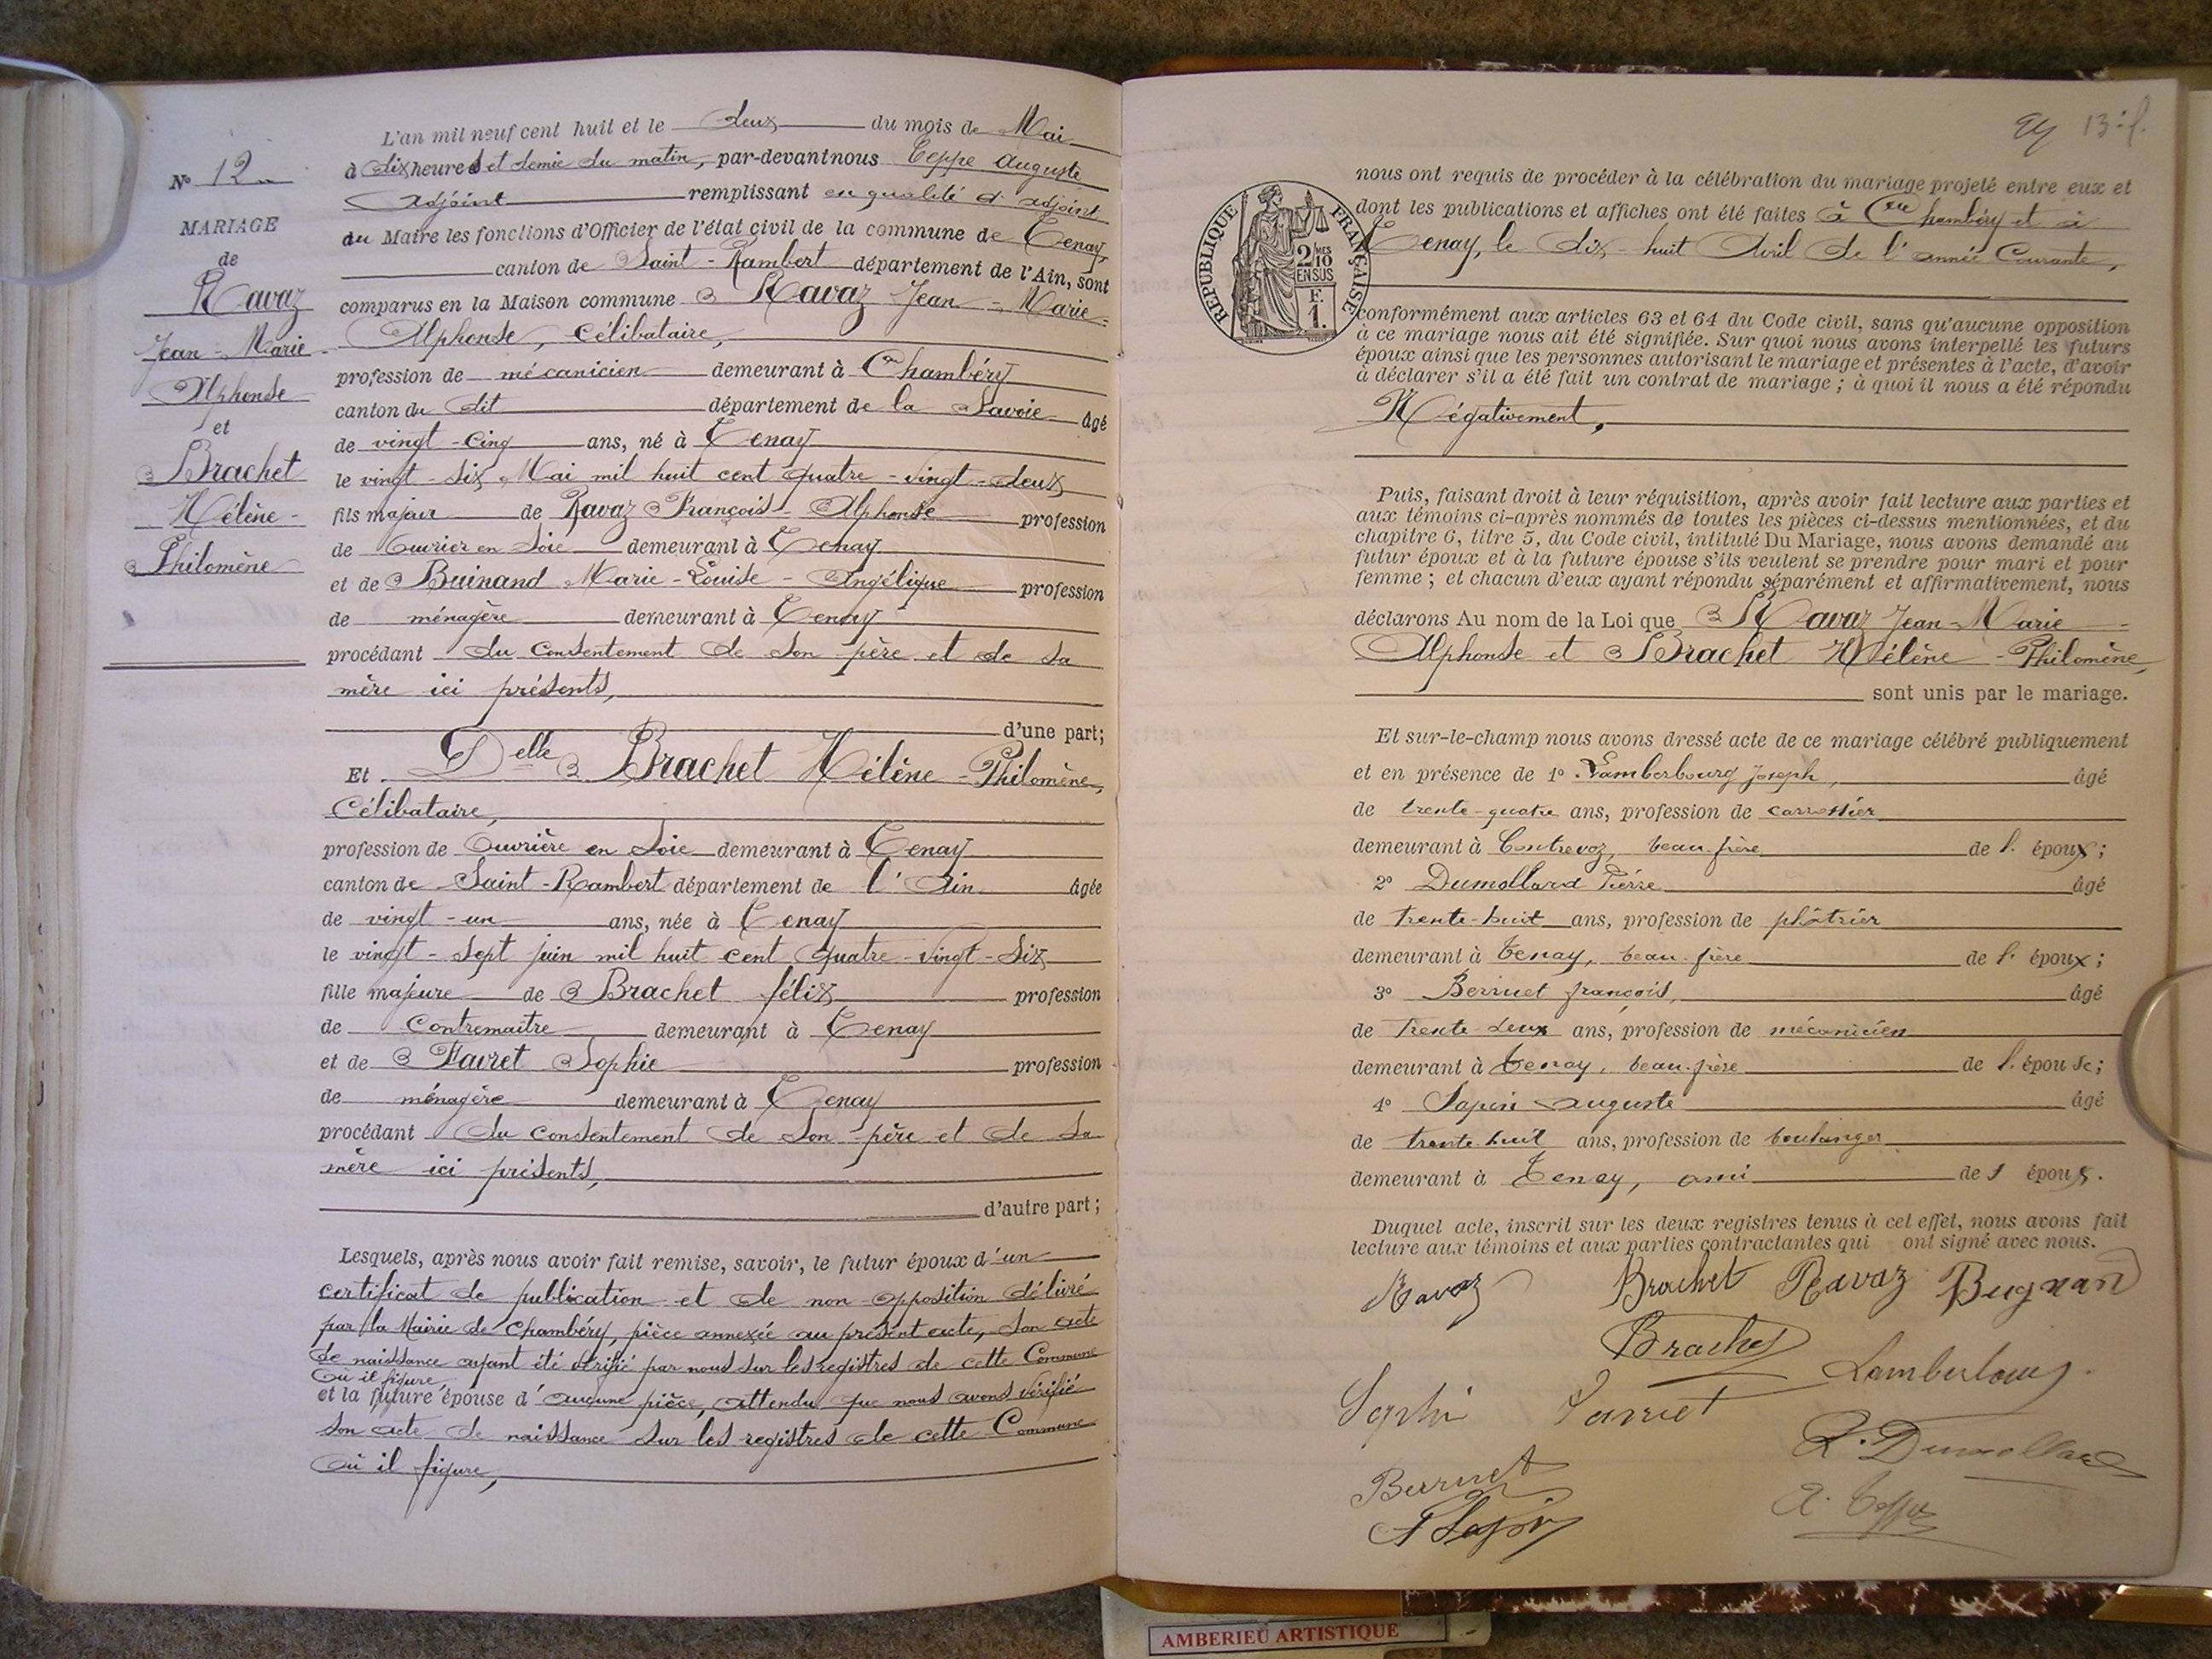 L'an mil neuf cent huit et le deux du mois de Mai
à dix heures et demie du matin, par-devant nous Teppe Auguste
Adjoint remplissant en qualité d'adjoint
du Maire les fonctions d'Officier de l'état civil de la commune de Tenay,
canton de Saint-Rambert département de l'Ain, sont
comparus en la Maison commune Ravaz Jean-Marie-
Alphonse, célibataire,
profession de mécanicien demeurant à Chambéry
canton du dit département de la Savoie âgé
de vingt-cinq ans, né à Tenay
le vingt-six Mai mil huit cent quatre-vingt-deux
fils majeur de Ravaz François-Alphonse profession
de Ouvrier en Soie demeurant à Tenay
et de Buinand Marie-Louise-Angélique profession
de ménagère demeurant à Tenay
procédant du consentement de son père et de sa
mère ici présents,
d'une part;
Et Delle Brachet Hélène-Philomène,
Célibataire,
profession de Ouvrière en Soie demeurant à Tenay
canton de Saint-Rambert département de l'Ain âgée
de vingt-un ans, née à Tenay
le vingt-sept juin mil huit cent quatre-vingt-six
fille majeure de Brachet félix profession
de Contremaitre demeurant à Tenay
et de Favret Sophie profession
de ménagère demeurant à Tenay
procédant du consentement de son père et de sa
mère ici présents,
d'autre part;
Lesquels, après nous avoir fait remise, savoir, le futur époux d'un
certificat de publication et de non-opposition délivré
par la Mairie de Chambéry, pièce annexée au présent acte, son acte
de naissance ayant été vérifié par nous sur les registres de cette Commune
où il figure,
et la future épouse d'aucune pièce, attendu que nous avons vérifié
son acte de naissance sur les registres de cette Commune
où il figure,
No 12
MARIAGE
de
Ravaz
Jean-Marie-
Alphonse
et
Brachet
Hélène-
Philomène
13
RÉPUBLIQUE FRANÇAISE
2 MES
10
EN SUS
F.
1.
nous ont requis de procéder à la célébration du mariage projeté entre eux et
dont les publications et affiches ont été faites à Chambéry et à
Tenay, le dix-huit Avril de l'année Courante,
conformément aux articles 63 et 64 du Code civil, sans qu'aucune opposition
à ce mariage nous ait été signifiée. Sur quoi nous avons interpellé les futurs
époux ainsi que les personnes autorisant le mariage et présentes à l'acte, d'avoir
à déclarer s'il a été fait un contrat de mariage; à quoi il nous a été répondu
Négativement,
Puis, faisant droit à leur réquisition, après avoir fait lecture aux parties et
aux témoins ci-après nommés de toutes les pièces ci-dessus mentionnées, et du
chapitre 6, titre 5, du Code civil, intitulé Du Mariage, nous avons demandé au
futur époux et à la future épouse s'ils veulent se prendre pour mari et pour
femme; et chacun d'eux ayant répondu séparément et affirmativement, nous
déclarons Au nom de la Loi que Ravaz Jean-Marie-
Alphonse et Brachet Hélène-Philomène,
sont unis par le mariage.
Et sur-le-champ nous avons dressé acte de ce mariage célébré publiquement
et en présence de 1o Lamberbourg Joseph, âgé
de trente-quatre ans, profession de carrossier
demeurant à Contrevoz, beau-frère de l'époux;
2o Dumollard Pierre âgé
de trente-huit ans, profession de plâtrier
demeurant à Tenay, beau-frère de l'époux;
3o Berruet françois, âgé
de trente-deux ans, profession de mécanicien
demeurant à Tenay, beau-frère de l'épouse;
4o Sapin Auguste âgé
de trente-huit ans, profession de boulanger
demeurant à Tenay, ami de l'époux.
Duquel acte, inscrit sur les deux registres tenus à cet effet, nous avons fait
lecture aux témoins et aux parties contractantes qui ont signé avec nous.
Ravaz Brachet Ravaz Bugnan
Brachet
Lamberbourg
P. Dumollard
Berruet
A. Teppe
A Sapin
AMBERIEU ARTISTIQUE